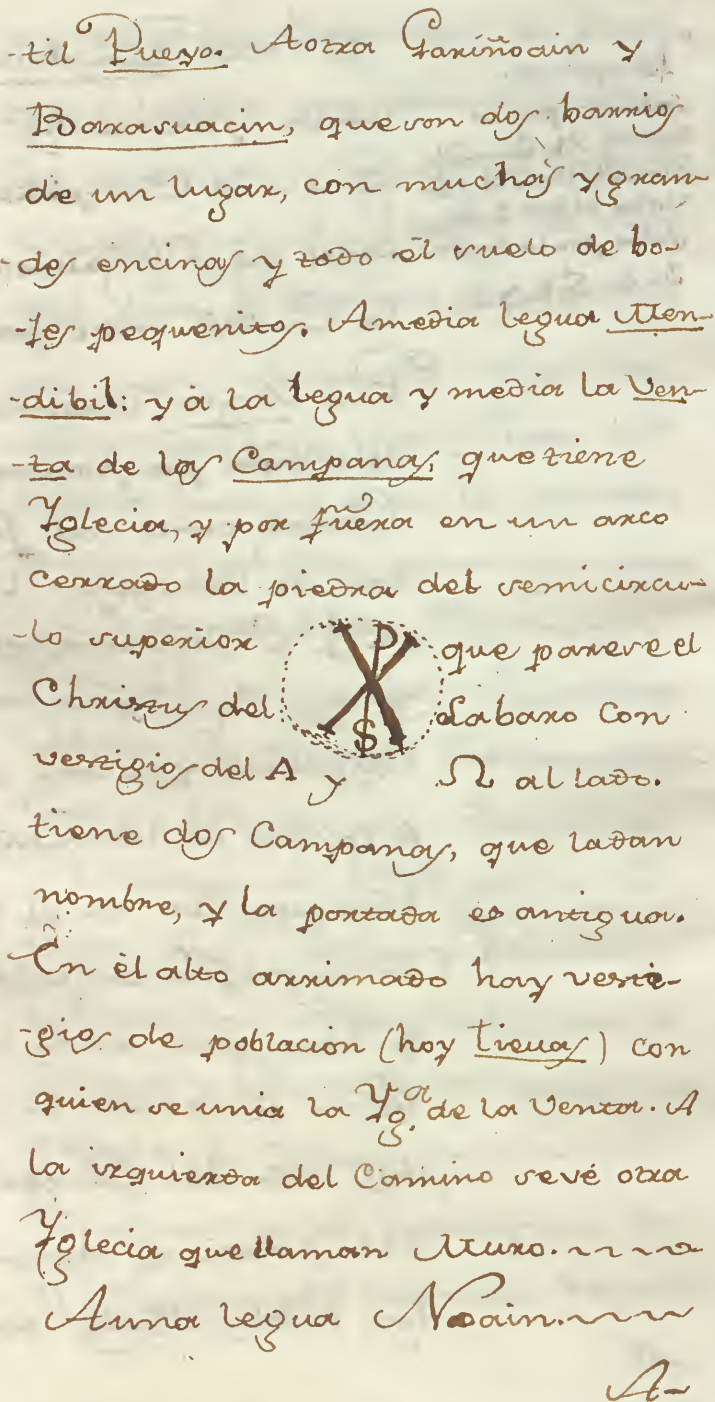 -til Pueyo. Aotra Gariñoain y
Barasuacin, que son dos barrios
de un lugar, con muchas y gran-
-des encinas y todo el suelo de bo-
-jes pequenitos. Amedia legua Men-
-dibil: y à la legua y media la Ven-
-ta de las Campanas, que tiene
Yglecia, y por fuera en un arco
cerrado la piedra del semicircu-
-lo superior P que pareve el
Christus del X S Labaro Con
vestigios del A y Ω al lado.
tiene dos Campanas, que ladan
nombre, y la portada es antigua.
En èl alto arrimado hay vesti-
-gios de población (hoy Tievas) con
quien se unia la Yg.ª de la Venta. A
la izquierda del Camino sevé otra
Yglecia que llaman Muro.
Auna legua Noain.
A-